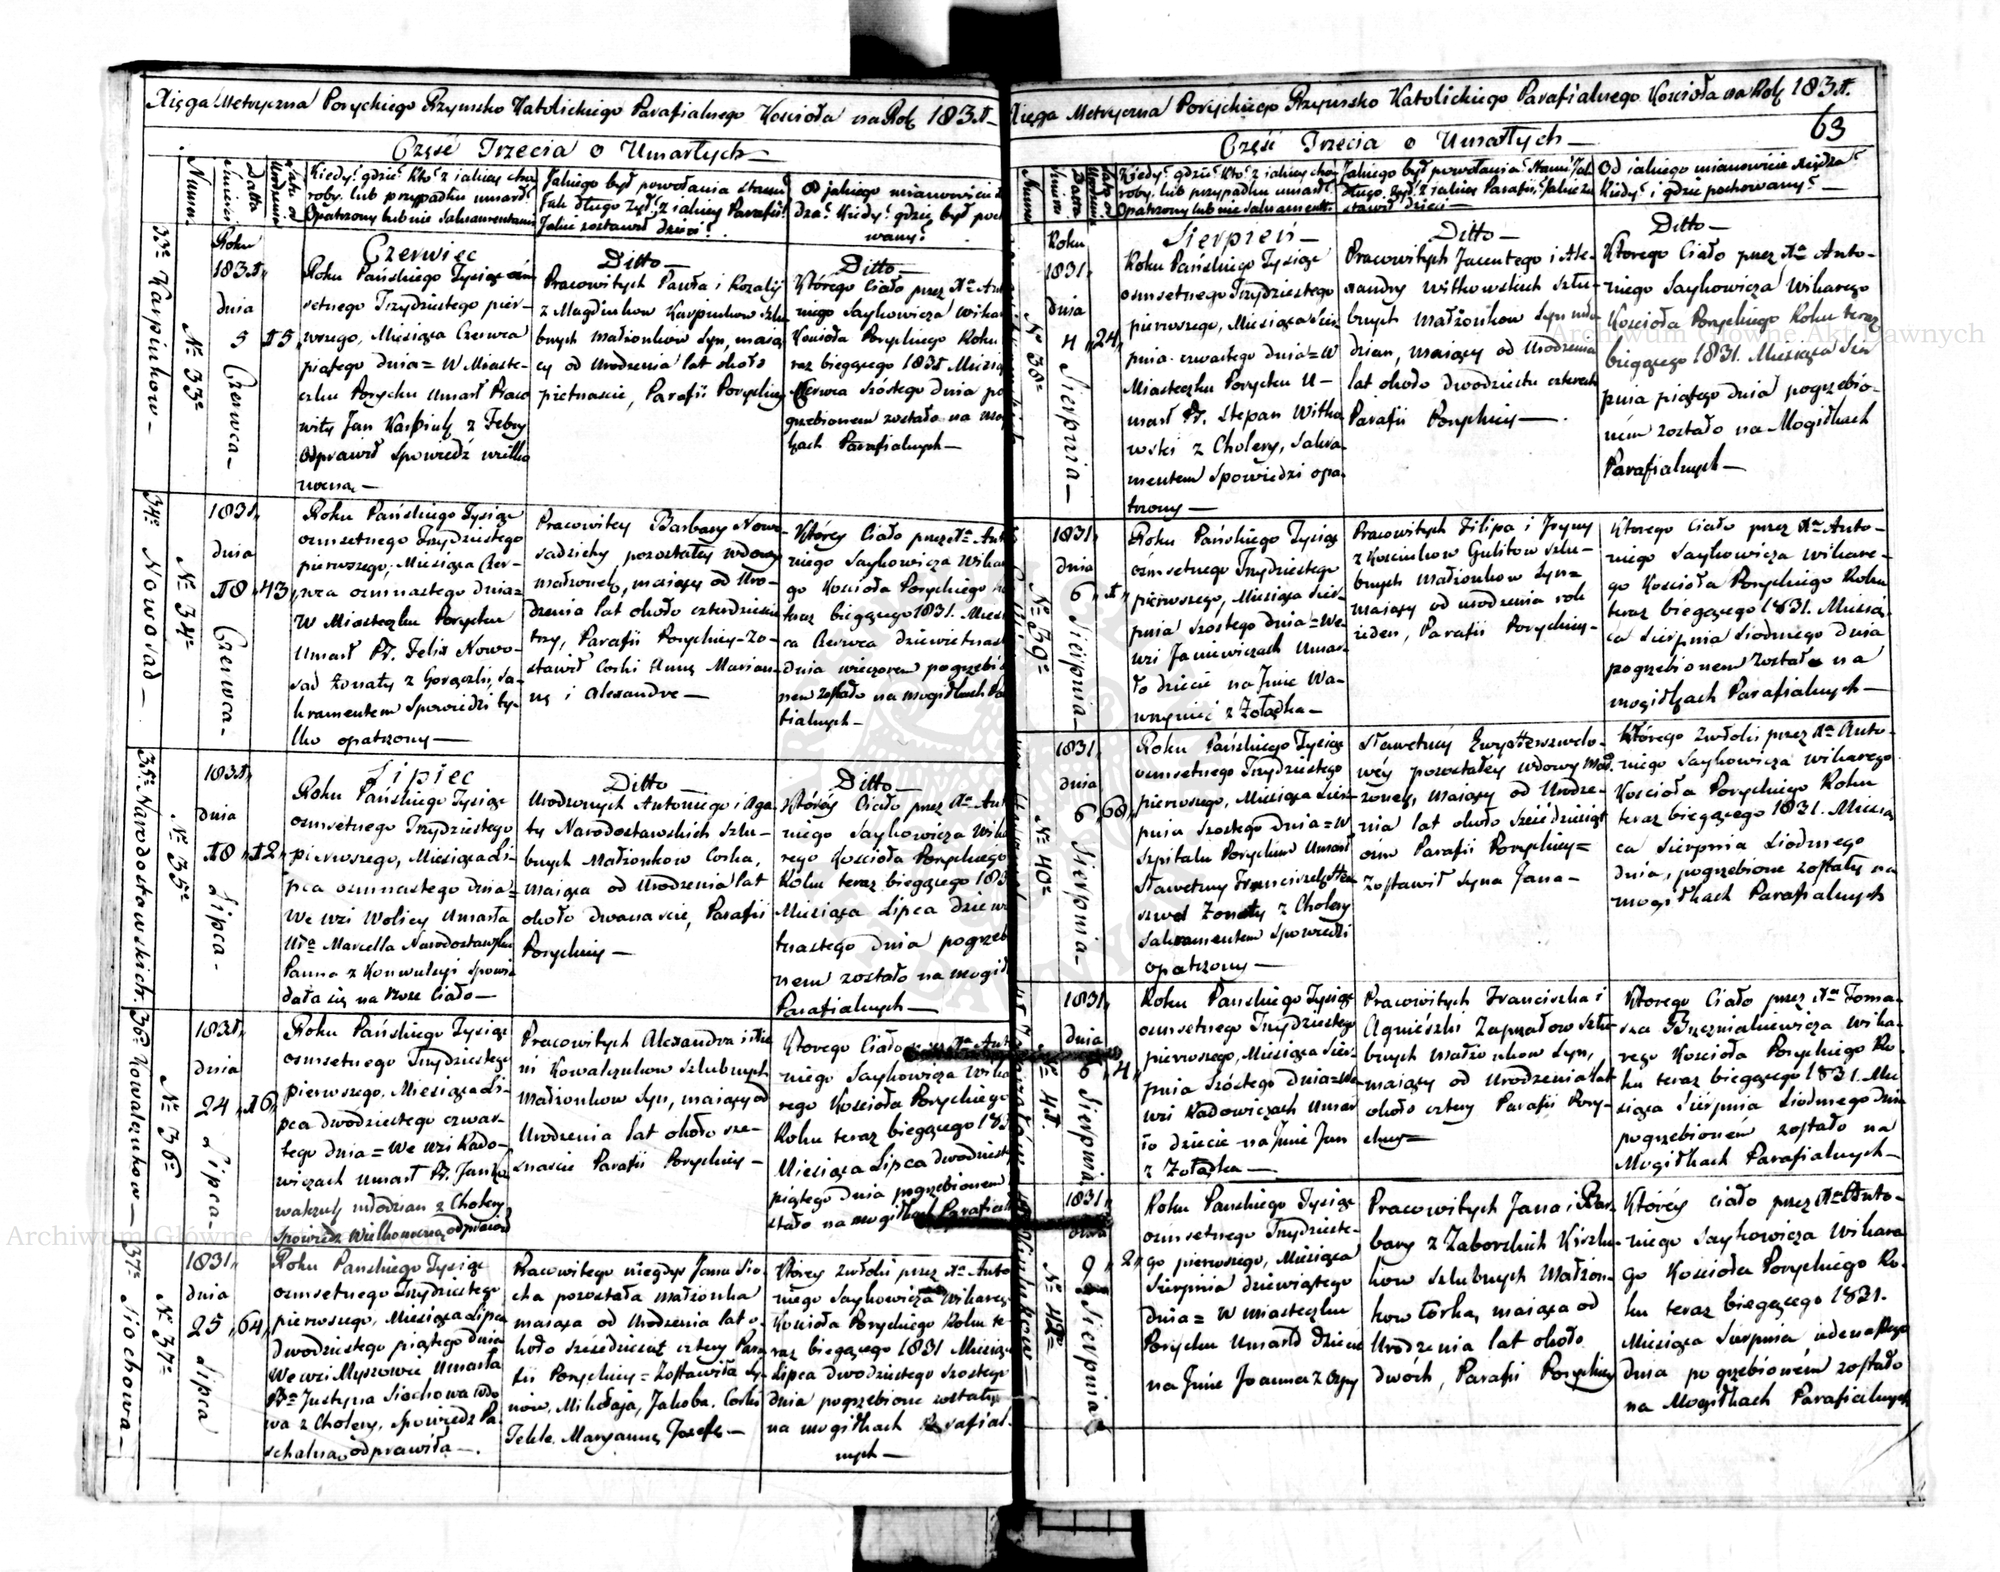 Xięga Metryczna Poryckiego Rzymsko Katolickiego Parafialnego Kościoła na Rok 1831
Część Trzecia o Umarłych
Numer
Datta Smierci
Lata od Urodzenia
Kiedy? gdzie? kto? z iakiey cho
roby lub przypadku umarł?
Opatrzony lub nie Sakramentami
Jakiego był powołania stanu
Jak długo żył? z iakiey Parafii?
Jakie zostawił dzieci?
Od jakiego mianowicie
dza? Kiedy? gdzie był poch
wany?
33. Karpiukow
Nr 33
Roku
1831
dnia
5
Czerwca
15
Czerwiec
Roku Pańskiego Tysiąc ośm
setnego Trzydziestego pier-
wszego, Miesiąca Czerwca
piątego dnia = W Miaste-
czku Porycku umarł Praco
wity Jan Karpiuk z Febry
Odprawił Spowiedź wielka
nocną
Ditto
Pracowitych Pawła i Rozalij
z Karpiukow szlu
bnych małżonkow Syn, maią
cy od Urodzenia lat około
pietnascie, Parafii Poryckiey
Ditto
Którego Ciało przez Xa Anto
niego Saykowicza wika
Kościoła Poryckiego Roku
raz biegącego 1831 Miesią
Czerwca szóstego dnia po
grzebionem zostało na mog
łkach Parafialnych
34. Nowosad
Nr 34
1831
dnia
18
Czerwca
43
Roku Pańskiego Tysiąc
ośmsetnego Trzydziestego
pierwszego, Miesiąca Czer-
wca osmnastego dnia =
W Miasteczku Porycku
Umarł Pr. Felix Nowo-
sad Żonaty z Gorączki, Sa-
kramentem Spowiedzi ty-
lko opatrzony
Pracowitey Barbary Nowo
sadzichy pozostałey wdowy
małżonek, maiący od Uro-
dzenia lat około czterdziescie
try, Parafii Poryckiey - Zo-
stawił Corki Annę Marian-
nę i Alexandre
Którey Ciało przez Xa Anto
niego Saykowicza Wika
go Kościoła Poryckiego
teraz biegącego 1831. Miesi
ca Czerwca dziewietnast
dnia wieczorem pogrzebio
nem zostało na mogiłkach Pa
fialnych
35. Narodostawskich
Nr 35
1831
dnia
18
Lipca
12
Lipiec
Roku Pańskiego Tysiąc
osmsetnego Trzydziestego
pierwszego, Miesiąca Li-
pca osmnastego dnia =
We wsi Wolicy Umarła
Ur. Marcella Narodostawska
Panna z Konwulsyi Spowia
dała się na Boże Ciało
Ditto
Urodzonych Antoniego i Aga
ty Narodostawskich szlu-
bnych Małżonkow Corka,
maiąca od Urodzenia lat
około dwanascie, Parafii
Poryckiey
Ditto
Którey Ciało przez Xa Anto
niego Saykowicza Wika
rego Kościoła Poryckiego
Roku teraz biegącego 183
Miesiąca Lipca dziewie
tnastego dnia pogrzebio
nem zostało na mogił
Parafialnych
36. Kowalczukow
Nr 36
1831
dnia
24
Lipca
16
Roku Pańskiego Tysiąc
osmsetnego Trzydziestego
pierwszego, Miesiąca Li-
pca dwodziestego czwar-
tego dnia = We wsi Kado-
wiczach umarł Pr. Jan Ko
walczuk młodzian z Cholery
Spowiedz Wielkonocną odprawił
Pracowitych Alexandra i
Kowalczukow Szlubnych
małżonkow Syn, maiący od
Urodzenia lat około sze-
snascie Parafii Poryckiey
Ktorego Ciało Xa Anto
niego Saykowicza Wika
rego Kościoła Poryckiego
Roku teraz biegącego 183
Miesiąca Lipca dwodziest
piątego dnia pogrzebionem
stało na mogiłkach Parafial
37. Siochowa
Nr 37
1831
dnia
25
Lipca
64
Roku Panskiego Tysiąc
osmsetnego Trzydziestego
pierwszego, Miesiąca Lipca
Dwodziestego piątego dnia
We wsi Myszowie Umarła
Pr. Justyna Siochowa wdo
wa z Cholery, Spowiedz Pa
schalną odprawiła
Pracowitego niegdys Jana Sio-
cha pozostała małżonka
maiąca od Urodzenia lat o-
koło sześcdziesiąt cztery Para
fii Poryckiey = Zostawiła Sy
now, Mikołaja, Jakoba, Corki
Tekle, Maryannę, Jozefę
Którey zwłoki przez Xa Anto
niego Saykowicza Wikareg
Kościoła Poryckiego Roku te
raz biegącego 1831 Miesiąc
Lipca Dwodziestego Szostego
dnia pogrzebione zostały
na mogiłkach Parafial-
nych
Xięga Metryczna Poryckiego Rzymsko Katolickiego Parafialnego Kościoła na Rok 1831.
63
Część Trzecia o Umarłych
Kiedy? gdzie? Kto? z iakiey cho
roby lub przypadku umarł?
Opatrzony lub nie Sakramentt.
Jakiego był powołania? Stanu? Jak
długo żył? z iakiey Parafii? Jakie zo
stawił dzieci
Od iakiego mianowicie Xiędza?
Kiedy? i gdzie pochowany?
Nr 38
Roku
1831
dnia
4
Sierpnia
24
Sierpień
Roku Pańskiego Tysiąc
osmsetnego Trzydziestego
pierwszego, Miesiąca Sier
pnia czwartego dnia = W
Miasteczku Porycku U-
marł Pr. Stepan Witko
wski z Cholery, Sakra-
mentem Spowiedzi opa-
trzony
Ditto
Pracowitych Jacentego i Ale-
xandry Witkowskich szlu-
bnych małżonkow Syn mło-
dzian, maiący od Urodzenia
lat około dwodziestu czterech
Parafii Poryckiey
Ditto
Ktorego Ciało przez Xa Anto-
niego Saykowicza Wikarego
Kościoła Poryckiego Roku teraz
biegącego 1831. Miesiąca Sier
pnia piątego dnia pogrzebio-
ném zostało na Mogiłkach
Parafialnych
Nr 39
1831
dnia
6
Sierpnia
1
Roku Pańskiego Tysiąc
ośmsetnego Trzydziestego
pierwszego, Miesiąca Sier-
pnia Szostego dnia = We-
wsi Janiewiczach Umar-
ło dziecie na Jmie Wa-
wrzyniec z Żołądka
Pracowitych Filipa i Jryny
z Gulitow szlu-
bnych Małżonkow Syn =
maiący od urodzenia rok
ieden, Parafii Poryckiey
Ktorego Ciało przez Xa Anto-
niego Saykowicza Wikare-
go Kościoła Poryckiego Roku
teraz biegącego 1831. Miesią
ca Sierpnia Siodmego Dnia
pogrzebionem zostało na
mogiłkach Parafialnych
Nr 40
1831
dnia
6
Sierpnia
68
Roku Pańskiego Tysiąc
osmsetnego Trzydziestego
pierwszego, Miesiąca Sier
pnia Szostego dnia = W
Szpitalu Poryckim Umarł
Sławetny Franciszek
Żonaty z Cholery
Sakramentem Spowiedzi
opatrzony
Sławetney Ewy
wéy pozostałéy wdowy mał.
żonek, maiący od Urodze-
nia lat około sześćdziesiąt
ośm Parafii Poryckiey =
Zostawił Syna Jana
Którego Zwłoki przez Xa Anto-
niego Saykowicza Wikarego
Kościoła Poryckiego Roku
teraz biegącego 1831. Miesią
ca Sierpnia Siodmego
dnia, pogrzebione zostały na
mogiłkach Parafialnych
Nr 41.
1831
dnia
6
Sierpnia
4
Roku Pańskiego Tysiąc
osmsetnego Trzydziestego
pierwszego, Miesiąca Sier-
pnia Szóstego dnia = We
wsi Kadowiczach Umar
ło dziecie na Jmie Jan
z Żołądka
Pracowitych Franciszka i
Agniészki Zapzałow Szlu-
bnych małżonkow Syn,
maiący od Urodzenia lat
około cztery Parafii Pory-
ckiey =
Ktorego Ciało przez Xa Toma-
sza Wika-
rego Kościoła Poryckiego Ro-
ku teraz biegącego 1831. Mie
siąca Sierpnia Siodmego Dnia
pogrzebioném zostało na
Mogiłkach Parafialnych
Nr 42
1831
dnia
9
Sierpnia
2
Roku Panskiego Tysiąc
osmsetnego Trzydzieste-
go pierwszego, Miesiąca
Sierpnia dziewiątego
dnia = W miasteczku
Porycku Umarło dziecie
na Jmie Joanna z
Pracowitych Jana i Bar-
bary z Zaborskich Kiszlu-
kow Szlubnych Małżon-
kow Córka, maiąca od
Urodzenia lat około
dwóch, Parafii Poryckiey
Któréy ciało przez Xa Anto-
niego Saykowicza Wikare
go Kościoła Poryckiego Ro-
ku teraz biegącego 1831.
Miesiąca Sierpnia iedenastego
dnia pogrzebioném zostało
na Mogiłkach Parafialnych
Archiwum Główne Akt Dawnych